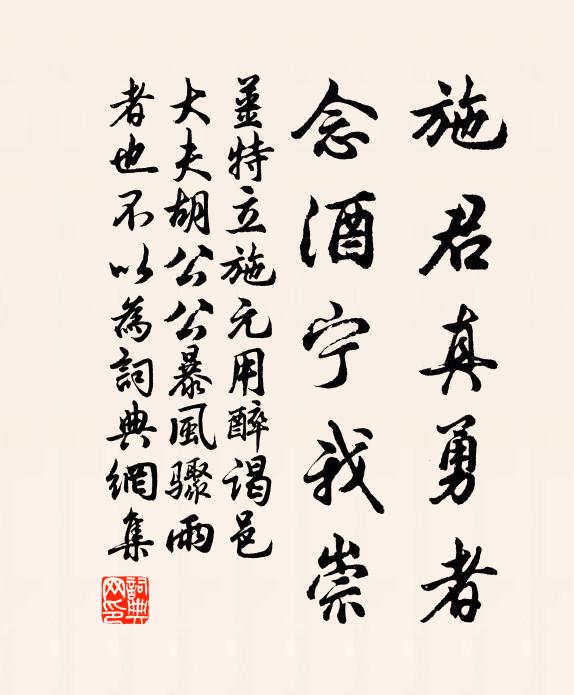 施君真勇者
念酒宁我崇
薑特立施元用醉谒邑
大夫胡公公暴風骤雨
者也不以為詞典網集
詞典
网印